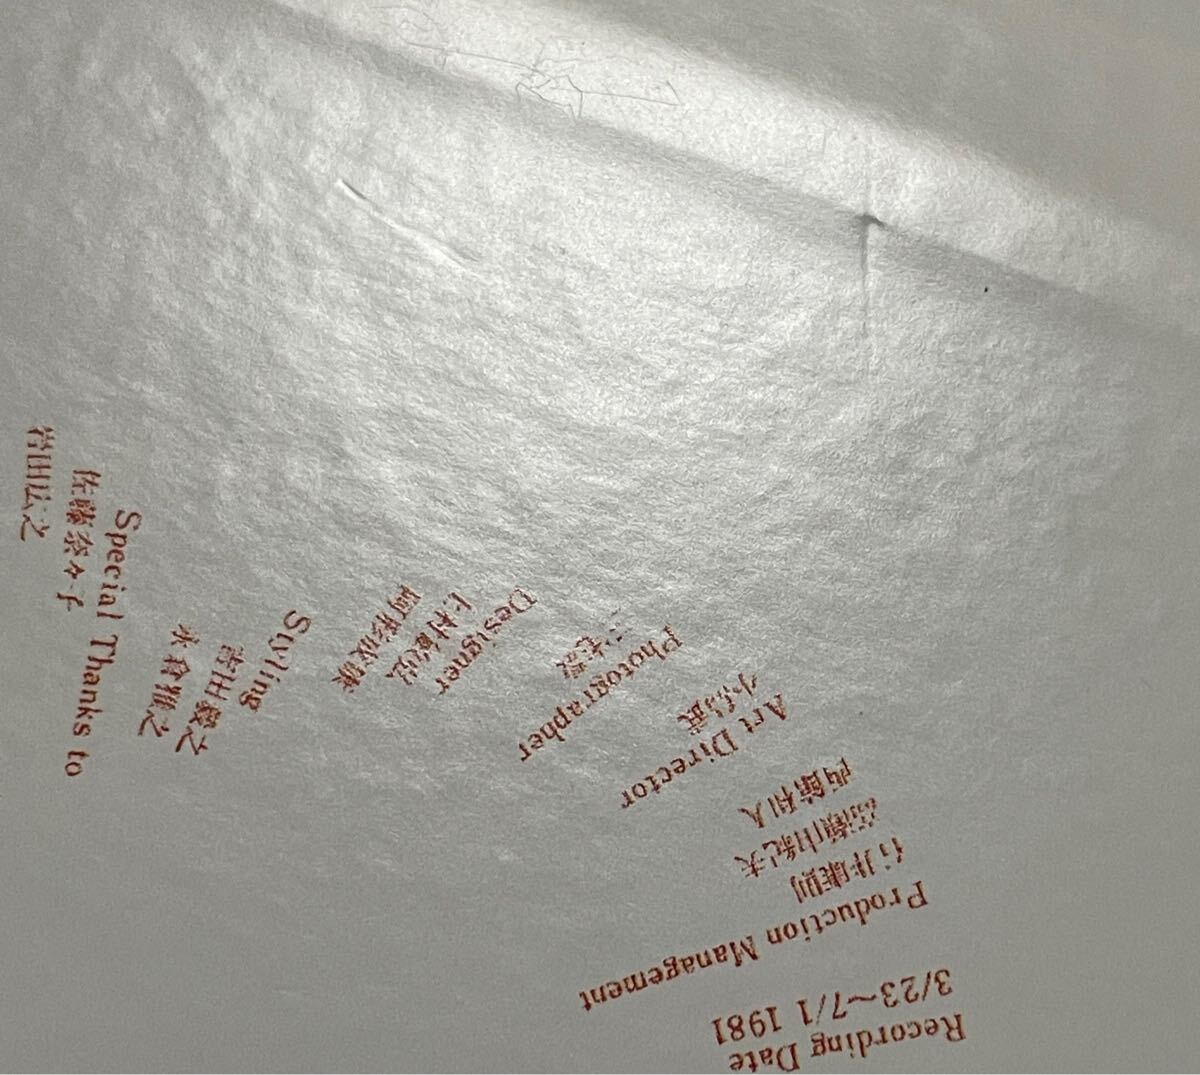 Recording Date
3/23~7/1 1981
Production Management
石井康則
高瀬由紀夫
西舘和人
Art Director
小島武
Photographer
三宅
Designer
上村敏
阿形
Styling
吉田毅之
永倉雅之
Special Thanks to
佐藤奈々子
岩田広之